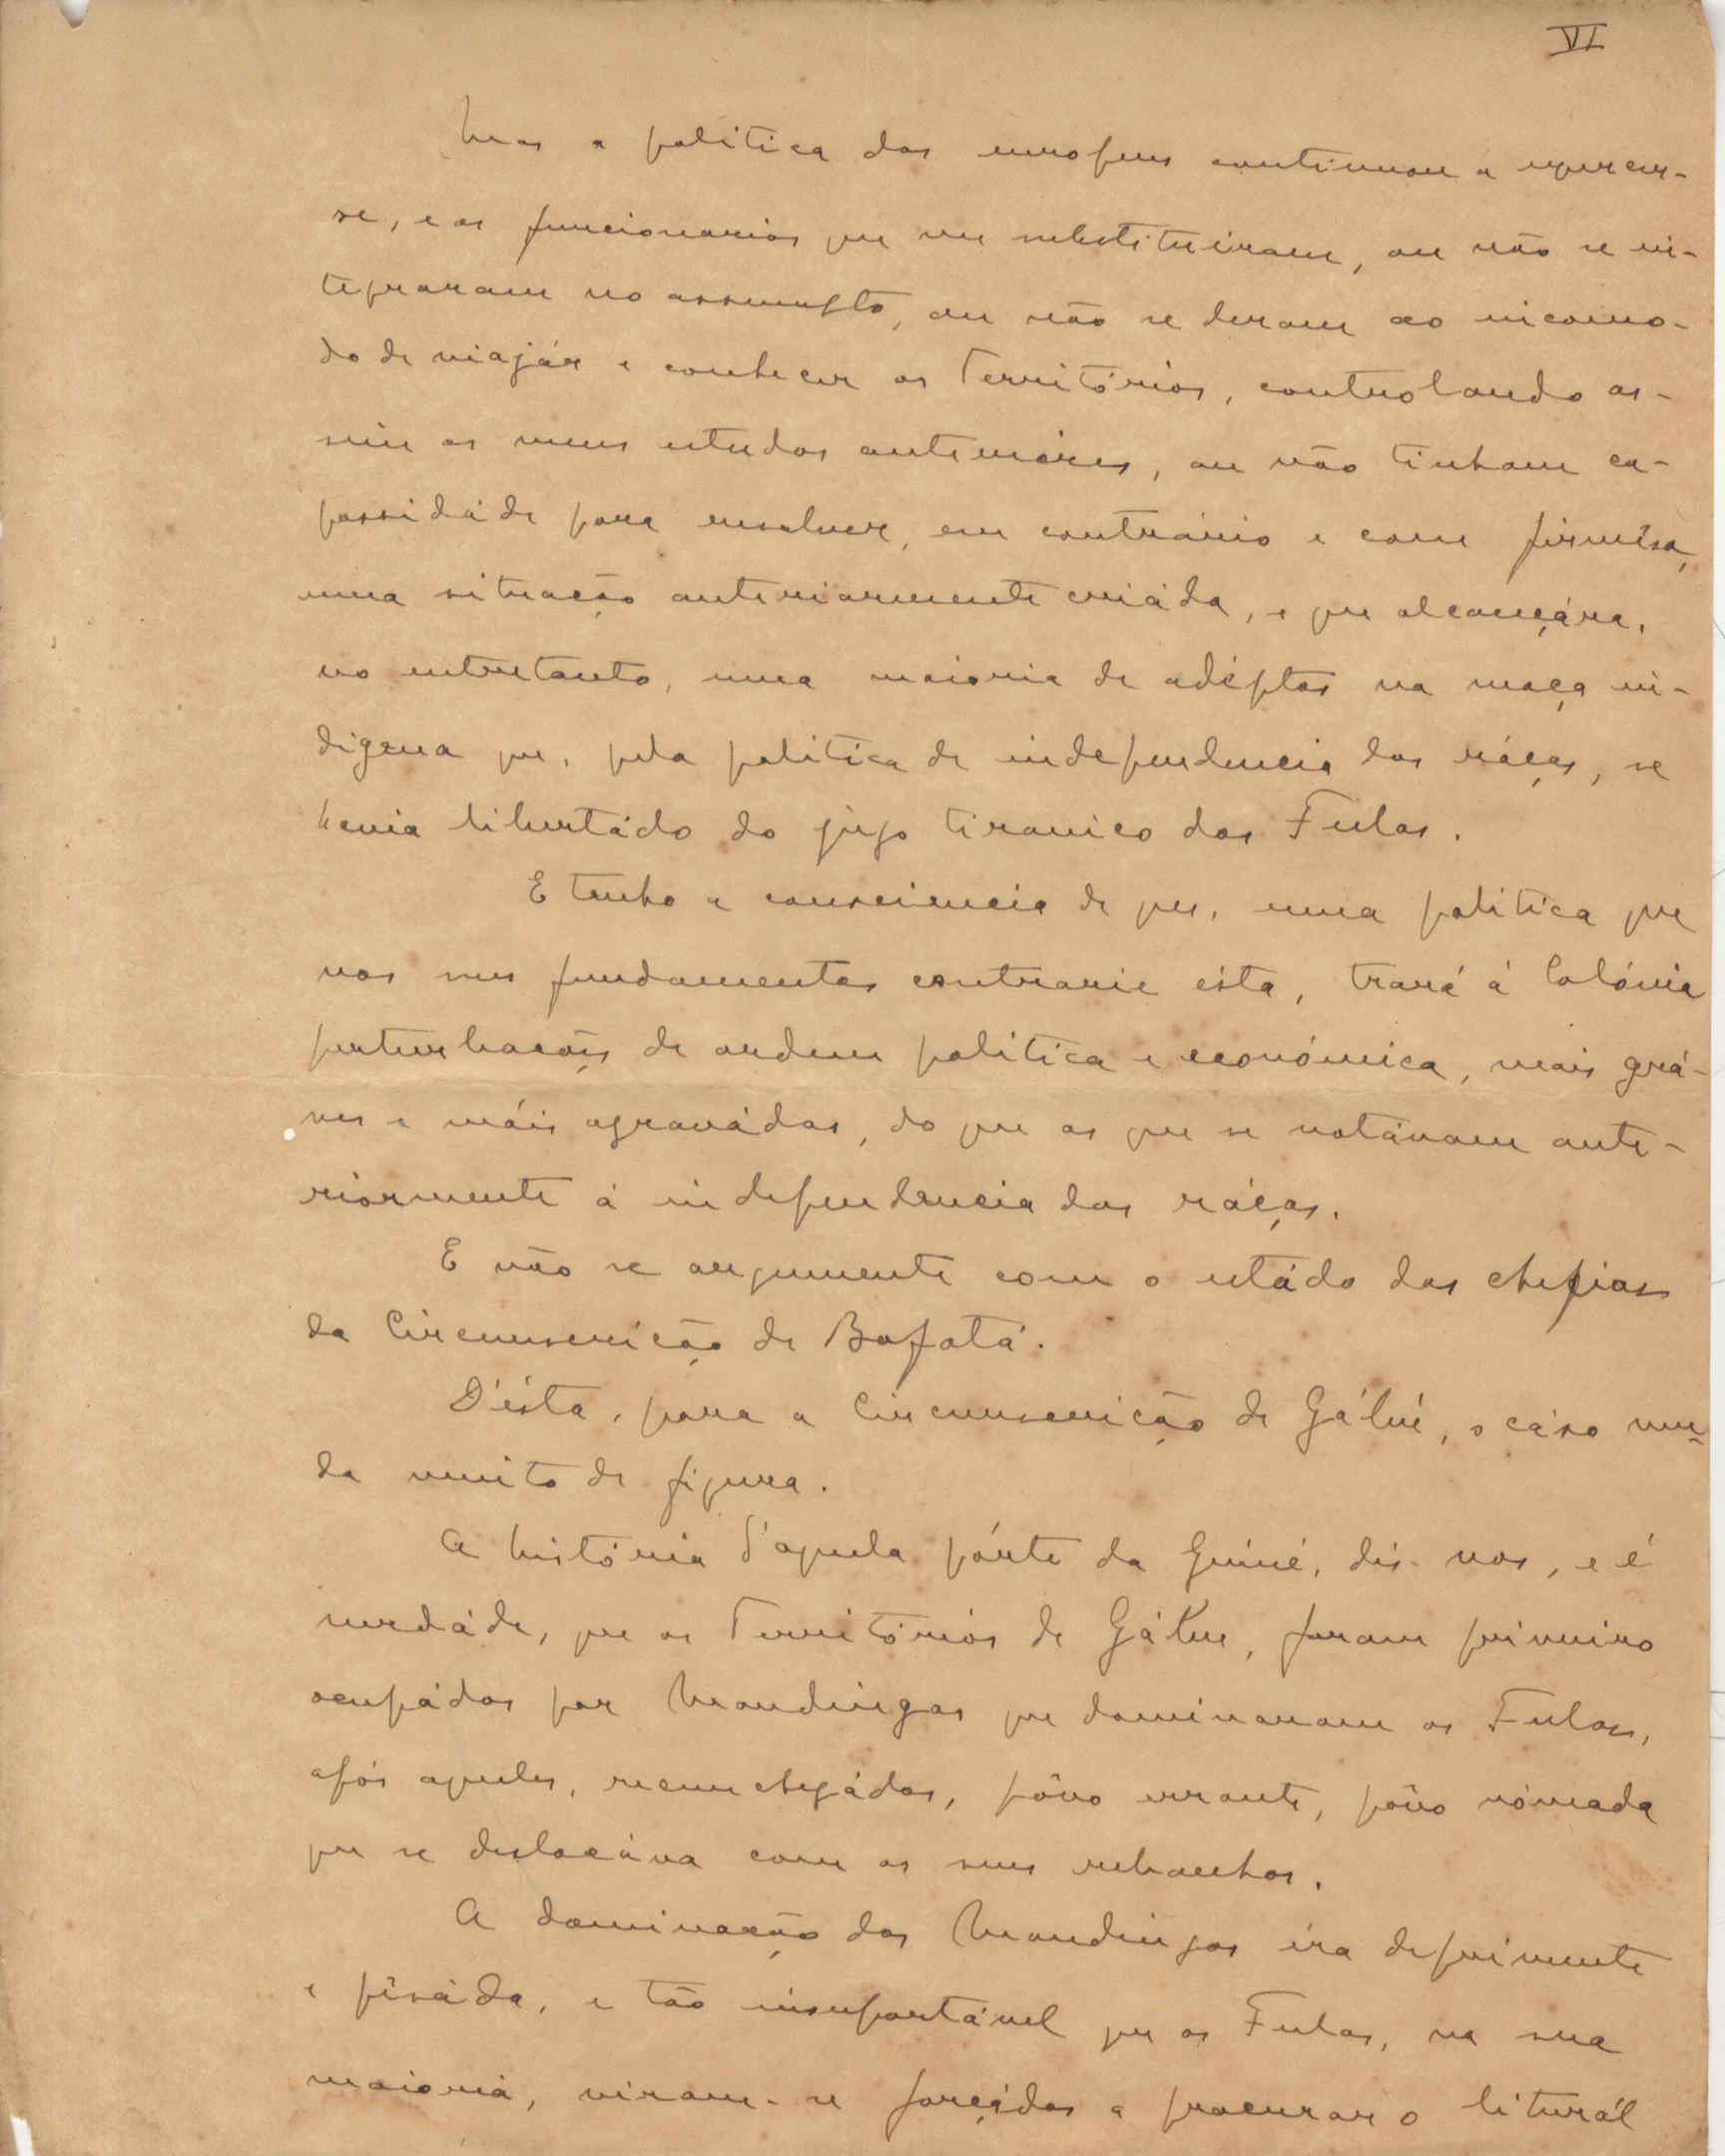 VI
Mas a politica dos europeus continuou a exercer-
se, e os funcionarios que me substituiram, ou não se in-
tegraram no assumpto, ou não se deram ao incomo-
do de viajár e conhecer os Territórios, controlando as-
sim os meus estudos anterióres, ou não tinham ca-
passidáde para resolver, em contrário e com firmêsa,
uma situação anteriormente criáda, e que alcançára,
no entretanto, uma maioria de adéptos na maça in-
digena que, pela politica de independencia das ráças, se
havia libertádo do jugo tiranico dos Fulas.
E tenho a consciencia de que, uma politica que
nos seus fundamentos contrarie ésta, trará á Colónia
perturbaçoẽs de ordem politica e económica, mais grá-
ves e máis agravádas, do que as que se notávam ante-
riormente á independencia das ráças.
E não se argumente com o estádo das chefias
da Circunscrição de Bafatá.
D'ésta, para a Circunscrição de Gábú, o cáso mu-
da muito de figura.
A história d'aquela párte da Guiné, dis-nos, e é
verdáde, que os Territórios de Gábu, foram primeiro
ocupádos por Mandingas que dominavam os Fulas,
após aqueles, recemchegádos, pôvo errante, pôvo nómada
que se deslocáva com os seus rebanhos.
A dominação dos Mandingas éra deprimente
e pêsáda, e tão insuportável que os Fulas, na sua
maioriá, viram-se forçádos a procurar o liturál